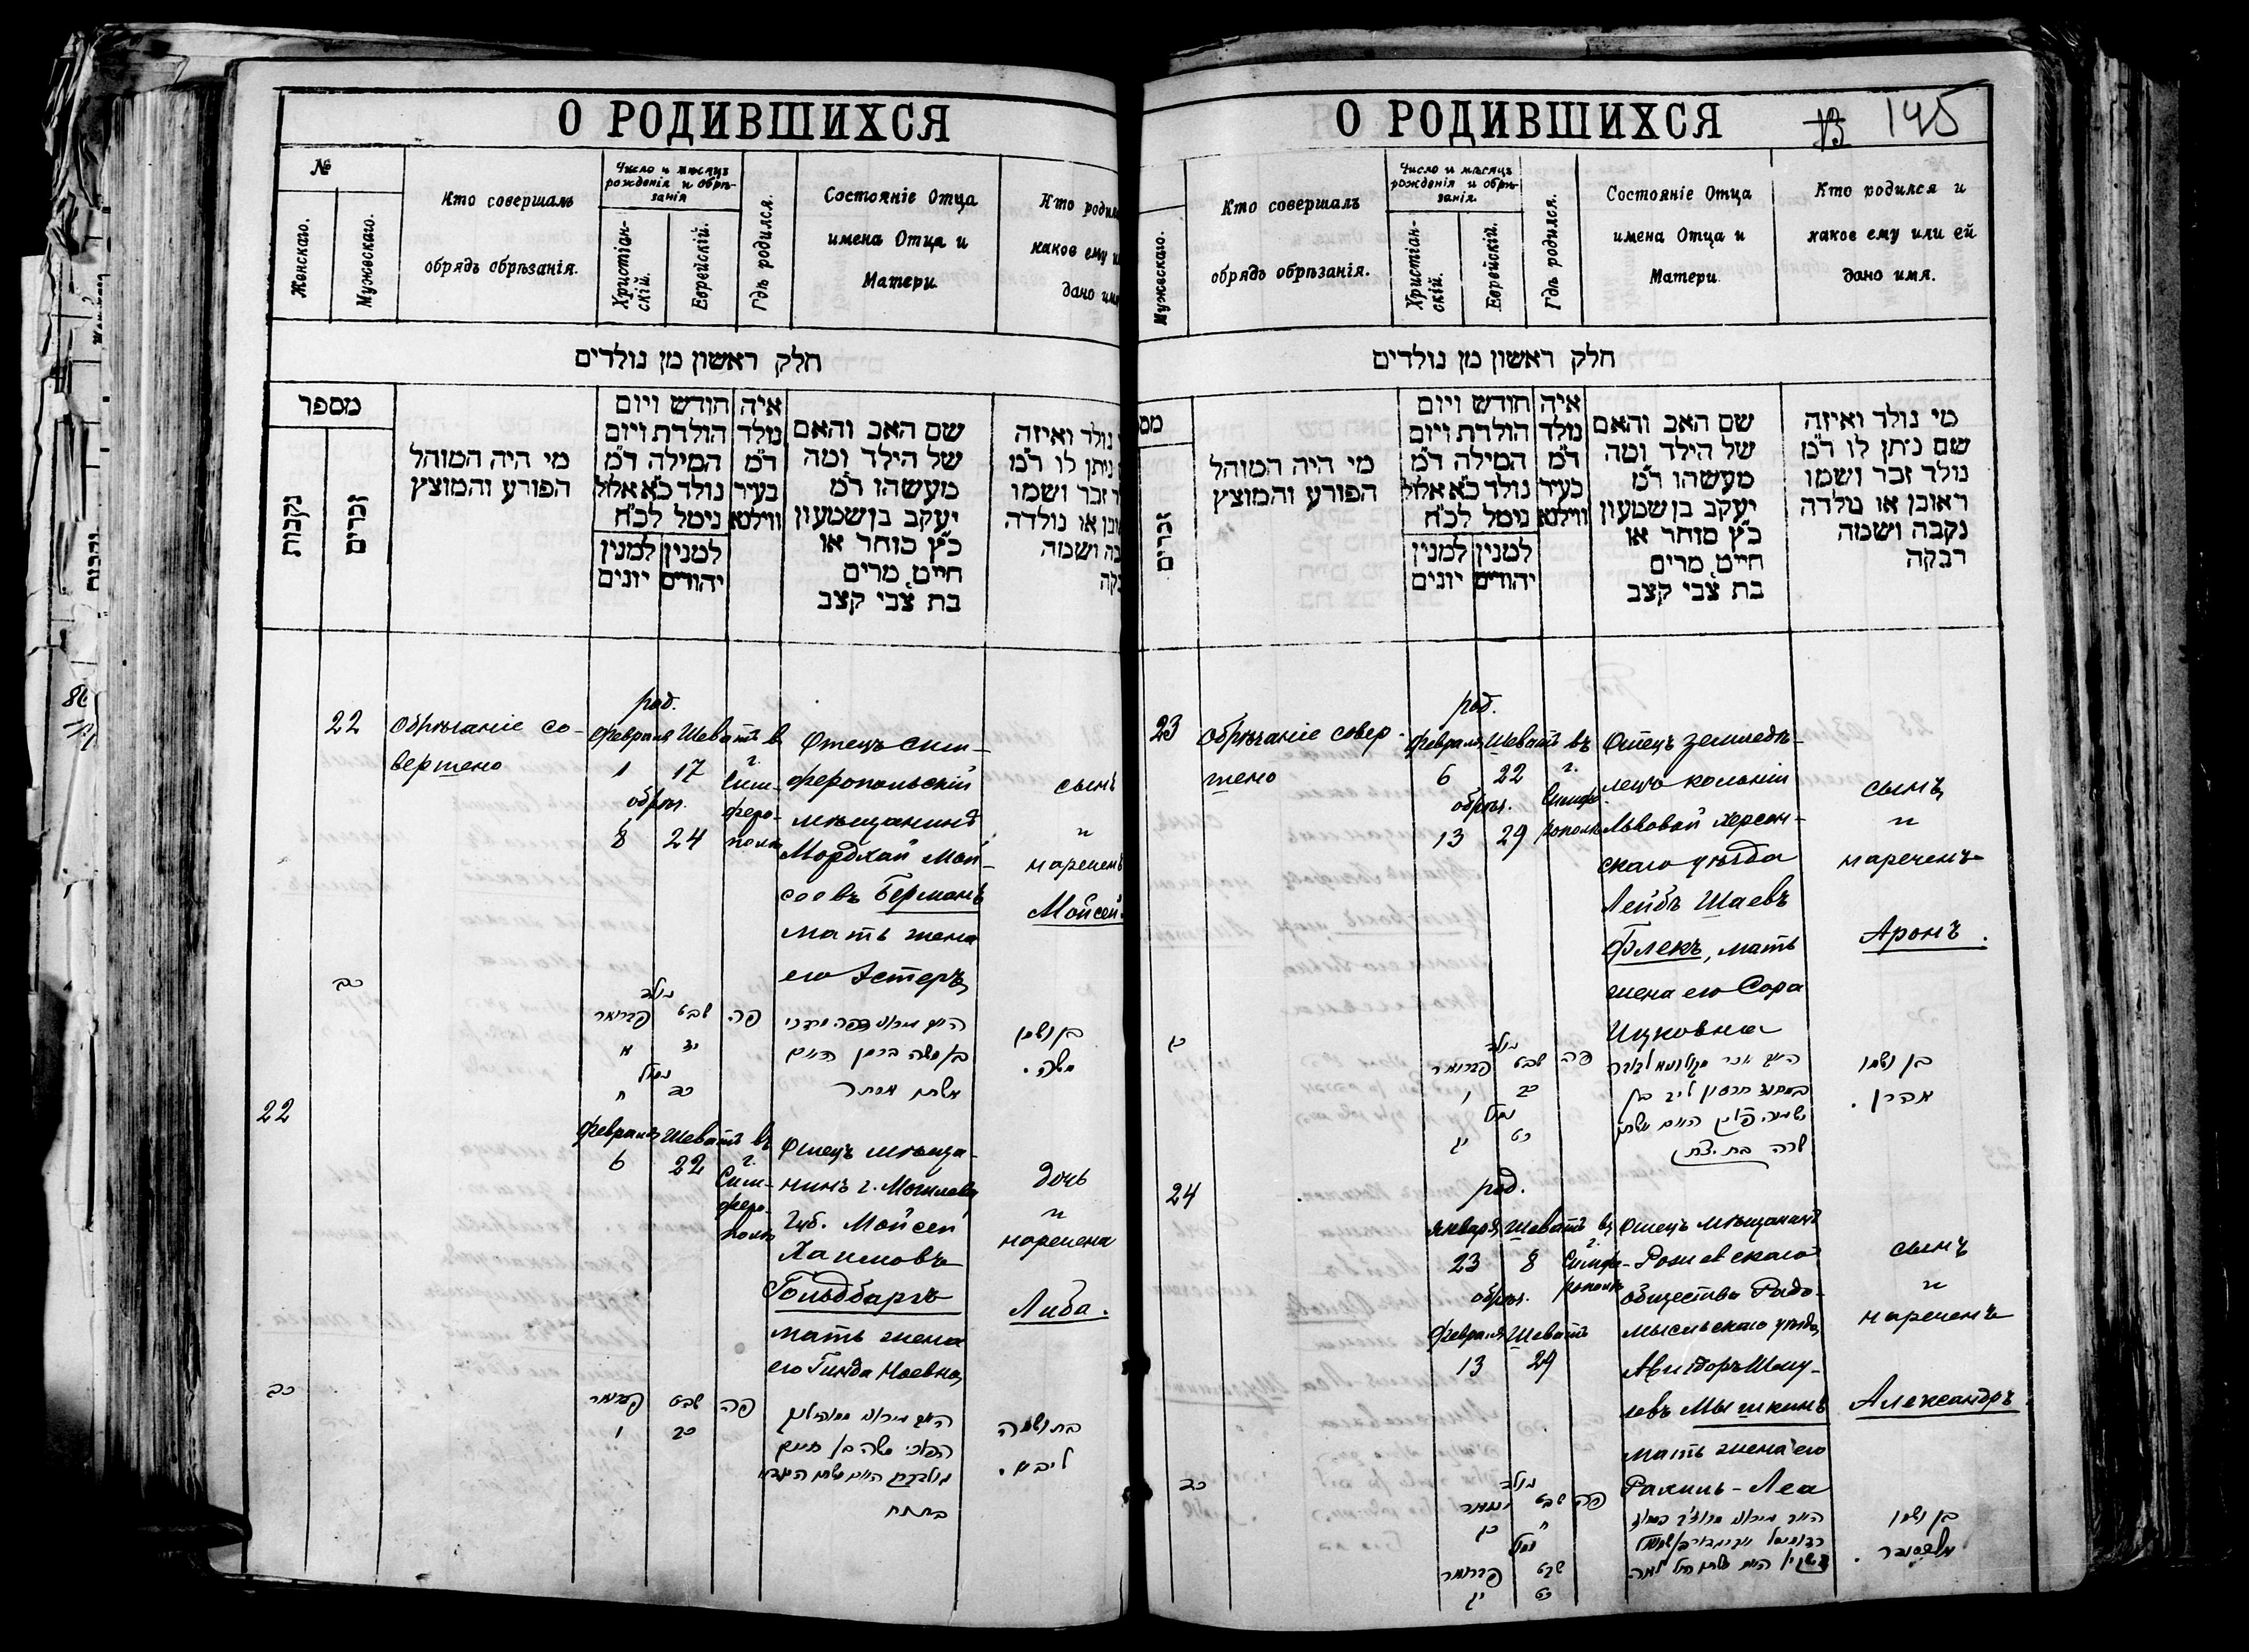 О РОДИВШИХСЯ
№
Женскаго.
Мужескаго.
Кто совершалъ
обрядъ обрѣзанія.
Число и мѣсяцъ
рожденія и обрѣ-
занія
Христіан-
скій.
Еврейскій.
Гдѣ родился.
Состояніе Отца
имена Отца и
Матери.
Кто родил
какое ему и
дано имя
חלק ראשון מן נולדים
מספר
נקבות
זכרים
מי היה המוהל
הפורע והמוצץ
חודש ויום
הולדת ויום
המילה ד״מ
נולד כ״א אלול
נימל לכ״ח
למנין למנין
יהודים יונים
איה
נולד
ד״מ
בעיר
ווילנא
שם האב והאם
של הילד ומה
מעשהו ד״מ
יעקב בן שמעון
כ״ץ סוחר או
חייט, מרים
בת צבי קצב
נולד ואיזה
ניתן לו ד״מ
זכר ושמו
או נולדה
ושמה
22
Обрѣзаніе со-
вершено
род.
февраля Шеватъ
1 17
обрѣз.
8 24
в
г.
Сим-
феро-
полѣ
Отецъ сим-
феропольскій
мѣщанинъ
Мордхай Мой-
сеевъ Берманъ
мать жена
его Эстеръ
сынъ
"
нареченъ
Мойсей
כב
נולד
פברואר שבט
א יז
נמול
ח כד
פה
בן ושמו
משה.
22
февраль Шеватъ
6 22
въ
г.
Сим-
феро-
полѣ
Отецъ мѣща-
нинъ г. Могилева
губ. Мойсей
Хаимовъ
Гольдбаргъ
мать жена
его Гинда Ноевна
дочь
"
наречена
Либа.
כב
פברואר שבט
ו כב
פה
בת ושמה
ליבא.
О РОДИВШИХСЯ
13 145
Мужескаго.
Кто совершалъ
обрядъ обрѣзанія.
Число и мѣсяцъ
рожденія и обрѣ-
занія.
Христіан-
скій.
Еврейскій.
Гдѣ родился.
Состояніе Отца
имена Отца и
Матери.
Кто родился и
какое ему или ей
дано имя.
חלק ראשון מן נולדים
זכרים
מי היה המוהל
הפורע והמוצץ
חודש ויום
הולדת ויום
המילה ד״מ
נולד כ״א אלול
נימל לכ״ח
למנין למנין
יהודים יונים
איה
נולד
ד״מ
בעיר
ווילנא
שם האב והאם
של הילד ומה
מעשהו ד״מ
יעקב בן שמעון
כ״ץ סוחר או
חייט, מרים
בת צבי קצב
מי נולד ואיזה
שם ניתן לו ד״מ
נולד זכר ושמו
ראובן או נולדה
נקבה ושמה
רבקה
23
Обрѣзаніе совер-
шено
род.
февраля Шеватъ
6 22
обрѣз.
13 29
въ
г.
Симфе-
рополѣ
Отецъ земледѣ-
лецъ колоніи
Львовой Херсон-
скаго уѣзда
Лейбъ Шаевъ
Флекъ, мать
жена его Сора
Ицковна
сынъ
"
нареченъ
Аронъ.
כג
נולד
פברואר שבט
ו כב
נמול
יג כט
פה
שרה בת יצחק
בן ושמו
אהרן.
24
род.
января Шеватъ
23 8
обрѣз.
февраля Шеватъ
13 29
въ
г.
Симфе-
рополѣ
Отецъ мѣщанинъ
общества Радо-
мысльскаго уѣзда
Авигдоръ Шму-
левъ Мышкинъ
мать жена его
Рахиль-Леа
сынъ
"
нареченъ
Александръ.
כד
נולד
ינואר שבט
כג ח
נמול
פברואר שבט
יג כט
פה
בן ושמו
אלכסנדר.